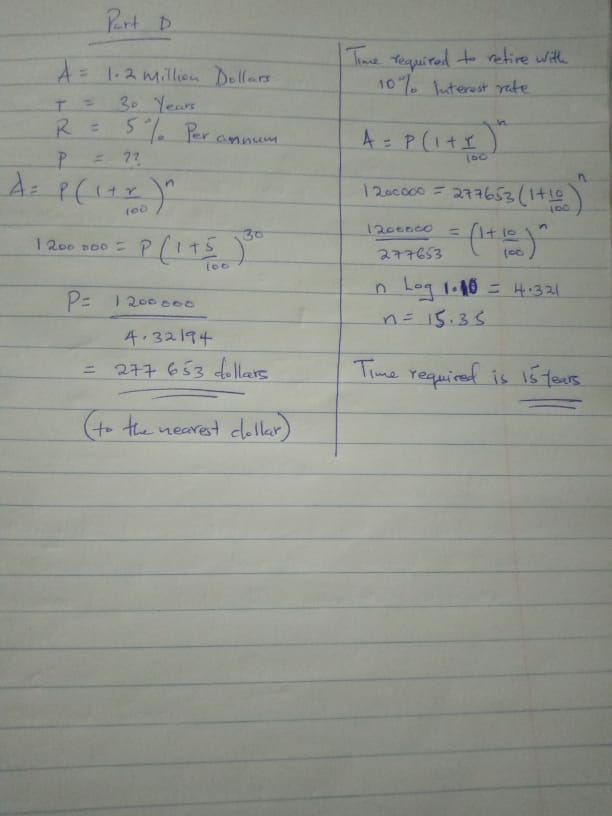 Part D
A = 1.2 Million Dollars
T = 30 Years
R = 5% Per annum
P = ??
A = P(1+r/100)^n
1200 000 = P(1+5/100)^30
P = 1200000/4.32194
= 277 653 dollars
(to the nearest dollar)
Time required to retire with
10% Interest rate
A = P(1+r/100)^n
1200000 = 277653(1+10/100)^n
1200000/277653 = (1+10/100)^n
n Log 1.10 = 4.321
n = 15.35
Time required is 15 Years